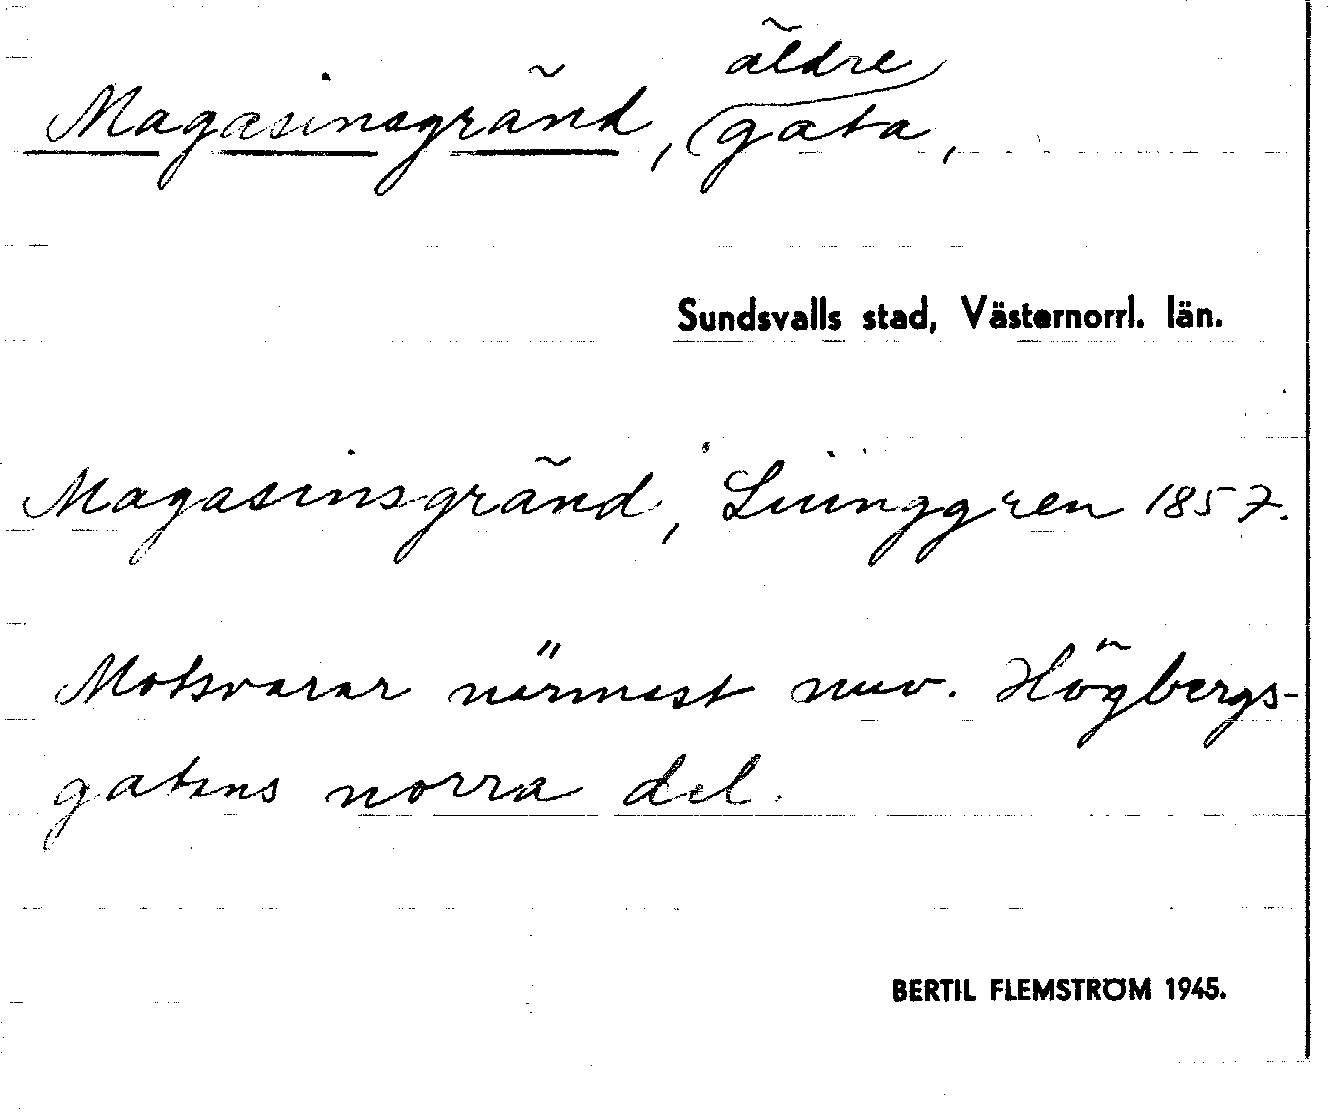 Magasinsgränd, äldre gata,
Sundsvalls stad, Västernorrl. län.
Magasinsgränd, Ljunggren 1857.
Motsvarar närmast nuv. Högbergs-
gatans norra del.
BERTIL FLEMSTRÖM 1945.